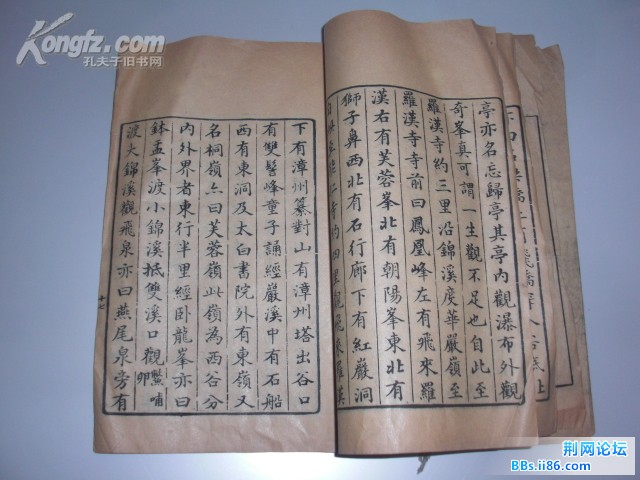 Kongfz.com
孔夫子旧书网
亭亦名忘歸亭其亭内觀瀑布外觀
奇峯真可謂一生觀不足也自此至
羅漢寺約三里沿錦溪度華嚴嶺至
羅漢寺寺前曰鳳凰峰左有飛來羅
漢右有芙蓉峯北有朝陽峯東北有
獅子鼻西北有石行廊下有紅巖洞
下有漳州纂對山有漳州塔出谷口
有雙髻峰童子誦經巖溪中有石船
西有東洞及太白書院外有東嶺又
名桐嶺亦曰芙蓉嶺此嶺為西谷分
内外界者東行半里經卧龍峯亦曰
鉢盂峯渡小錦溪抵雙溪口觀鷩哺卵
渡大錦溪觀飛泉亦曰燕尾泉旁有
十七
荆网论坛
BBs.ii86.com